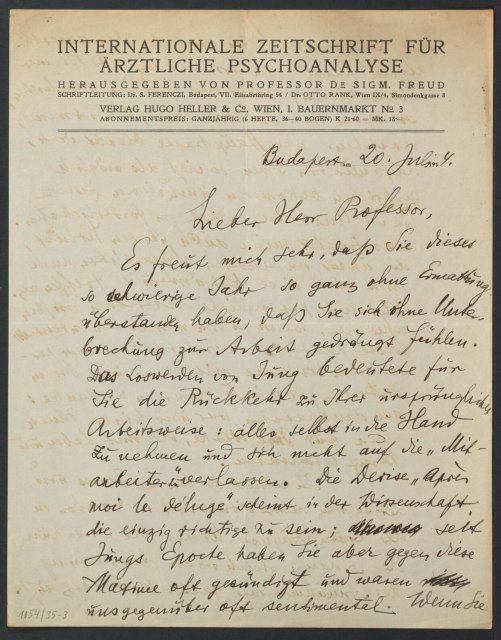 INTERNATIONALE ZEITSCHRIFT FÜR
ÄRZTLICHE PSYCHOANALYSE
HERAUSGEGEBEN VON PROFESSOR DR SIGM. FREUD
SCHRIFTLEITUNG: Dr. S. FERENCZI, Budapest, VII. Elisabethring 54 / Dr. OTTO RANK, Wien IX/4, Simondenkgasse 8
VERLAG HUGO HELLER & Co, WIEN, I. BAUERNMARKT No 3
ABONNEMENTSPREIS: GANZJÄHRIG (6 HEFTE, 36—40 BOGEN) K 21·60 = MK. 18·—
Budapest, 20. Juli 4.
Lieber Herr Professor,
Es freut mich sehr, daß Sie dieses
so schwierige Jahr so ganz ohne Ermattung
überstanden haben, daß Sie sich ohne Unter-
brechung zur Arbeit gedrängt fühlen.
Das Loswerden von Jung bedeutete für
Sie die Rückkehr zu Ihrer ursprünglichen
Arbeitsweise: alles selbst in die Hand
zu nehmen und sich nicht auf die „Mit-
arbeiter“ zu verlassen. Die Devise „Après
moi le déluge“ scheint in der Wissenschaft
die einzig richtige zu sein; seit
Jungs Epoche haben Sie aber gegen diese
Maxime oft gesündigt und waren
uns gegenüber oft sentimental. Wenn Sie
1054/35-3